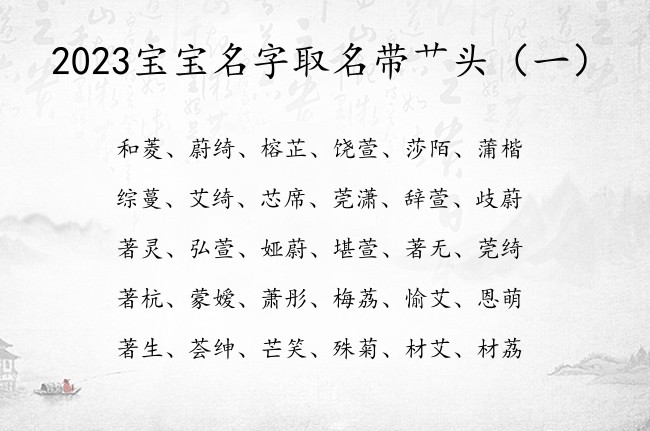 2023宝宝名字取名带艹头（一）
和菱、蔚绮、榕芷、饶萱、莎陌、蒲楷
综蔓、艾绮、芯席、莞潇、辞萱、歧蔚
著灵、弘萱、娅蔚、堪萱、著无、莞绮
著杭、蒙嫒、萧彤、梅荔、愉艾、恩萌
著生、荟绅、芒笑、殊菊、材艾、材荔